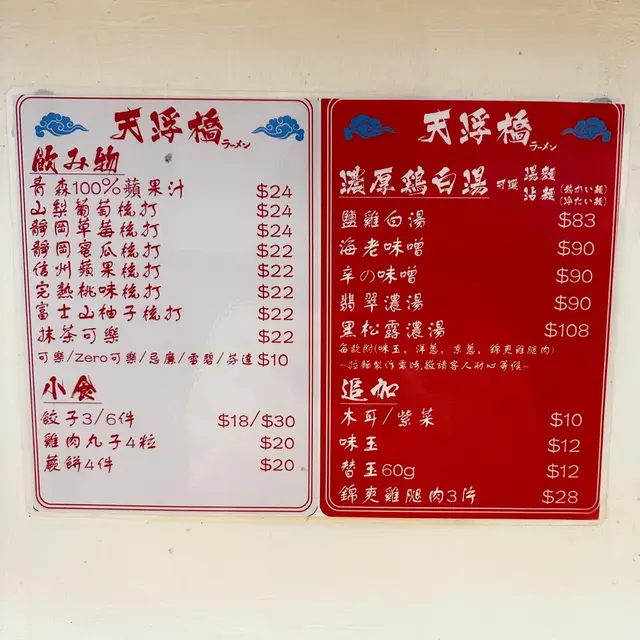 天浮橋
ラーメン
飲み物
青森100%蘋果汁 $24
山梨葡萄梳打 $24
靜岡草莓梳打 $24
靜岡蜜瓜梳打 $22
信州蘋果梳打 $22
完熟桃味梳打 $22
富士山柚子梳打 $22
抹茶可樂 $22
可樂/Zero可樂/忌廉/雪碧/芬達 $10
小食
餃子3/6件 $18/$30
雞肉丸子4粒 $20
蕨餅4件 $20
天浮橋
ラーメン
濃厚鶏白湯 可選 湯麵 (熱かい麵)
沾麵 (冷たい麵)
鹽雞白湯 $83
海老味噌 $90
辛の味噌 $90
翡翠濃湯 $90
黑松露濃湯 $108
每款附(味玉、洋蔥、京蔥、錦爽雞腿肉)
~拉麵製作需時,敬請客人耐心等候~
追加
木耳/紫菜 $10
味玉 $12
替玉60g $12
錦爽雞腿肉3片 $28